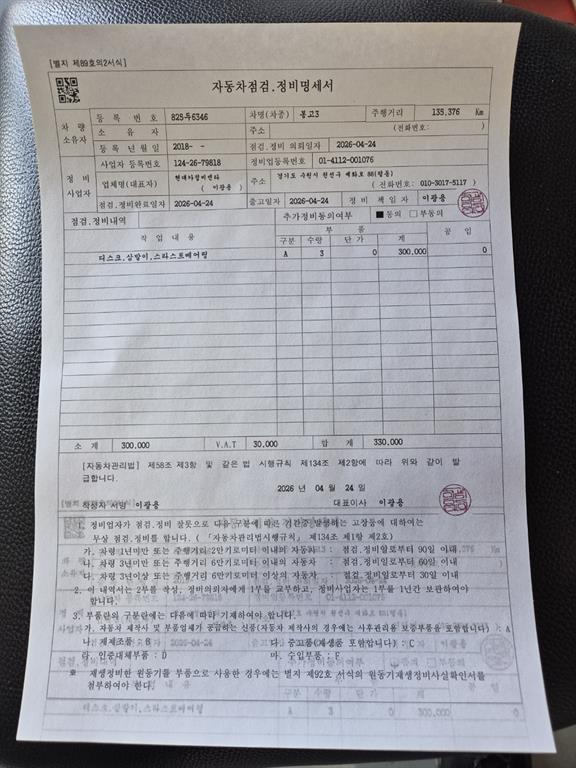 [별지 제89호의2서식]
자동차점검.정비명세서
차 량 소유자
등 록 번 호 825두6346 차명(차종) 봉고3 주행거리 135,376 Km
소 유 자 주소 (전화번호: )
등 록 년월일 2018- - 점검.정비 의뢰일자 2026-04-24
정 비 사업자
사업자 등록번호 124-26-79818 정비업등록번호 01-4112-001076
업체명(대표자) 현대카정비센타 ( 이광용 ) 주소 경기도 수원시 권선구 매화로 88(탑동) (전화번호: 010-3017-5117 )
점검.정비완료일자 2026-04-24 출고일자 2026-04-24 정 비 책임자 이광용
점검.정비내역 추가정비동의여부 ■동의 □부동의
작 업 내 용 부 품 공 임
구분 수량 단 가 계
디스크,삼발이,스라스트베어링 A 3 0 300,000 0
소 계 300,000 V.A.T 30,000 합 계 330,000
[자동차관리법] 제58조 제3항 및 같은법 시행규칙 제134조 제2항에 따라 위와 같이 발
급합니다.
2026 년 04 월 24 일
작성자 서명 이광용 대표이사 이광용
1. 정비업자가 점검.정비 잘못으로 다음 구분에 따른 기간중 발생하는 고장등에 대하여는
무상 점검.정비를 합니다. (「자동차관리법시행규칙」 제134조 제1항 제2호)
가. 차령 1년미만 또는 주행거리 2만키로미터 이내의 자동차 : 점검.정비일로부터 90일 이내
나. 차령 3년미만 또는 주행거리 6만키로미터 이내의 자동차 : 점검.정비일로부터 60일 이내
다. 차령 3년이상 또는 주행거리 6만키로미터 이상의 자동차 : 점검.정비일로부터 30일 이내
2. 이 내역서는 2부를 작성, 정비의뢰자에게 1부를 교부하고, 정비사업자는 1부를 1년간 보관하여야
합니다.
3. 부품란의 구분란에는 다음에 따라 기재하여야 합니다.
가. 자동차 제작사 및 부품업체가 공급하는 신품(자동차 제작사의 경우에는 사후관리용 보증부품을 포함합니다) : A
나. 재제조품 : B 다. 중고품(재생품 포함합니다) : C
라. 인증대체부품 : D 마. 수입부품 : F
※ 재생정비한 원동기를 부품으로 사용한 경우에는 별지 제92호 서식의 원동기재생정비사실확인서를
첨부하여야 한다.
디스크,삼발이,스라스트베어링 A 3 0 300,000 0